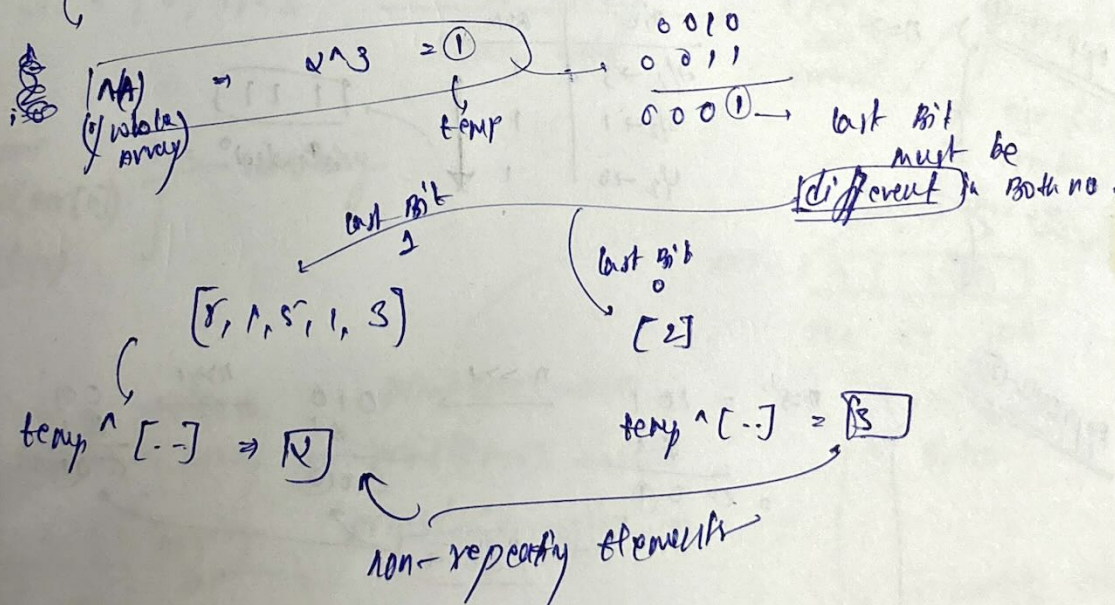 ^(A) => 2^3 = 1
(of whole
Array)
temp
0010
0011
0001 → last Bit
must be
different in Both no.
last Bit
1
last Bit
0
[5, 1, 5, 1, 3]
[2]
temp ^ [..] => 2
temp ^ [..] = 3
non-repeating elements